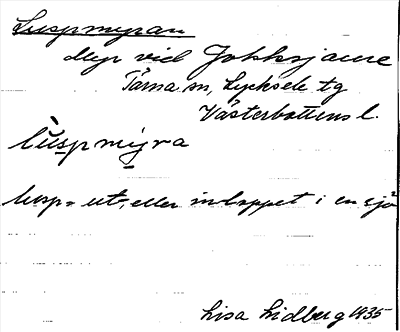 Luspmyran
Myr vid Jokksjaure
Tärna sn, Lycksele tg
Västerbottens l.
lu̇spmyra
lusp = ut-, eller inloppet i en sjö
Lisa Lidberg 1935